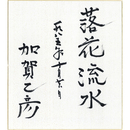 落花流水
加賀乙彦